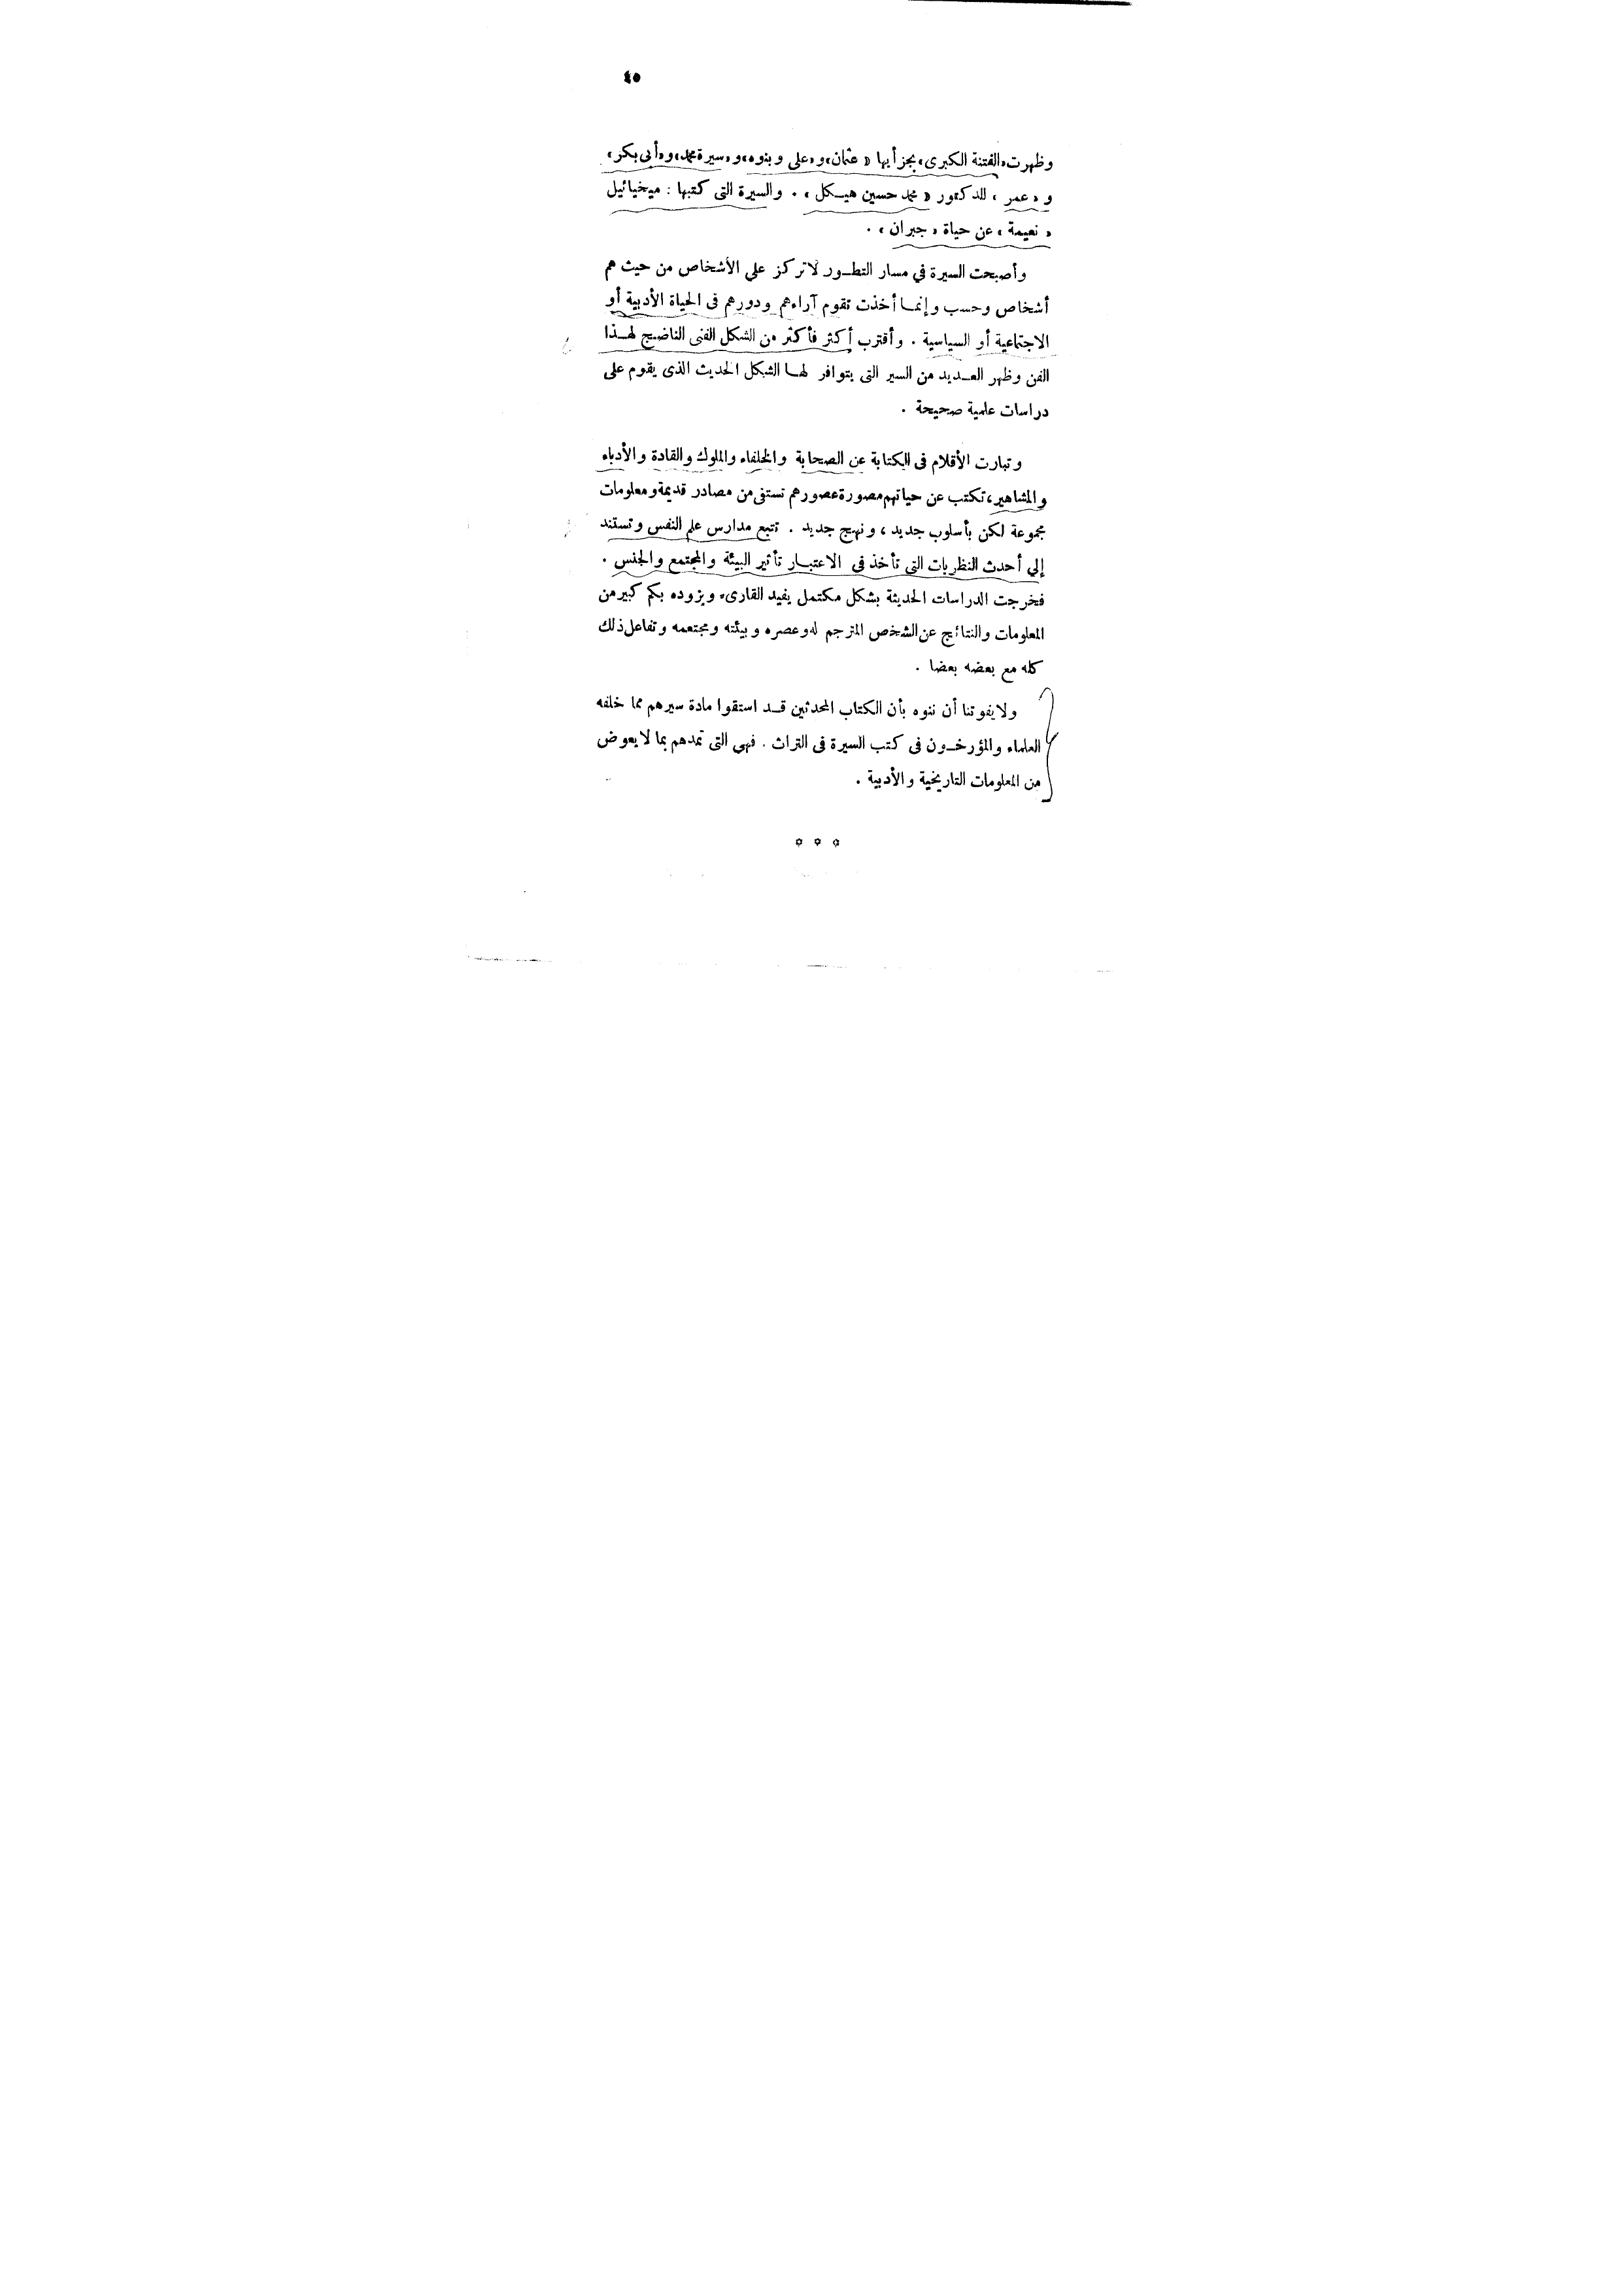 ٤٥
وظهرت «الفتنة الكبرى» بجزأيها «عثمان» و «على وبنوه» و «سيرة محمد» و «أبى بكر»
و «عمر» للدكتور «محمد حسين هيكل» . والسيرة التى كتبها : ميخيائيل
«نعيمة» عن حياة «جبران» .
وأصبحت السيرة في مسار التطور لا تركز على الأشخاص من حيث هم
أشخاص وحسب وإنما أخذت تقوم آراءهم ودورهم فى الحياة الأدبية أو
الاجتماعية أو السياسية . وأقترب أكثر فأكثر من الشكل الفنى الناضج لهذا
الفن وظهر العديد من السير التى يتوافر لها الشكل الحديث الذى يقوم على
دراسات علمية صحيحة .
وتبارت الأقلام فى الكتابة عن الصحابة والخلفاء والملوك والقادة والأدباء
والمشاهير، تكتب عن حياتهم مصورة عصورهم تستقى من مصادر قديمة ومعلومات
مجموعة لكن بأسلوب جديد ، ونهج جديد . تتبع مدارس علم النفس وتستند
إلى أحدث النظريات التى تأخذ فى الاعتبار تأثير البيئة والمجتمع والجنس .
فخرجت الدراسات الحديثة بشكل مكتمل يفيد القارىء ويزوده بكم كبير من
المعلومات والنتائج عن الشخص المترجم له وعصره وبيئته ومجتعمه وتفاعل ذلك
كله مع بعضه بعضا .
ولا يفوتنا أن ننوه بأن الكتاب المحدثين قد استقوا مادة سيرهم مما خلفه
العلماء والمؤرخون فى كتب السيرة فى التراث . فهى التى تمدهم بما لا يعوض
من المعلومات التاريخية والأدبية .